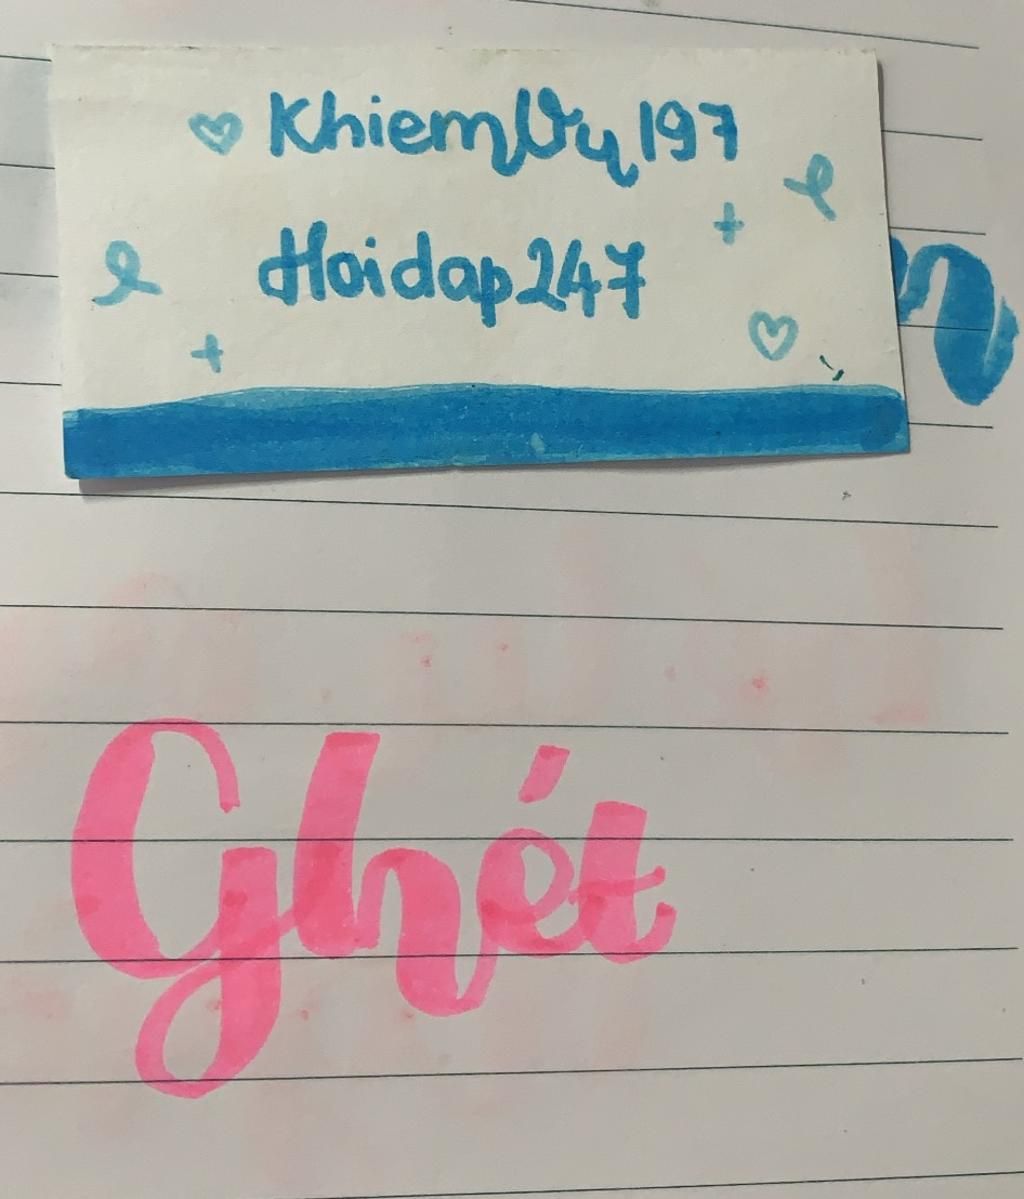 KhiemVy197
Hoidap247
Ghét